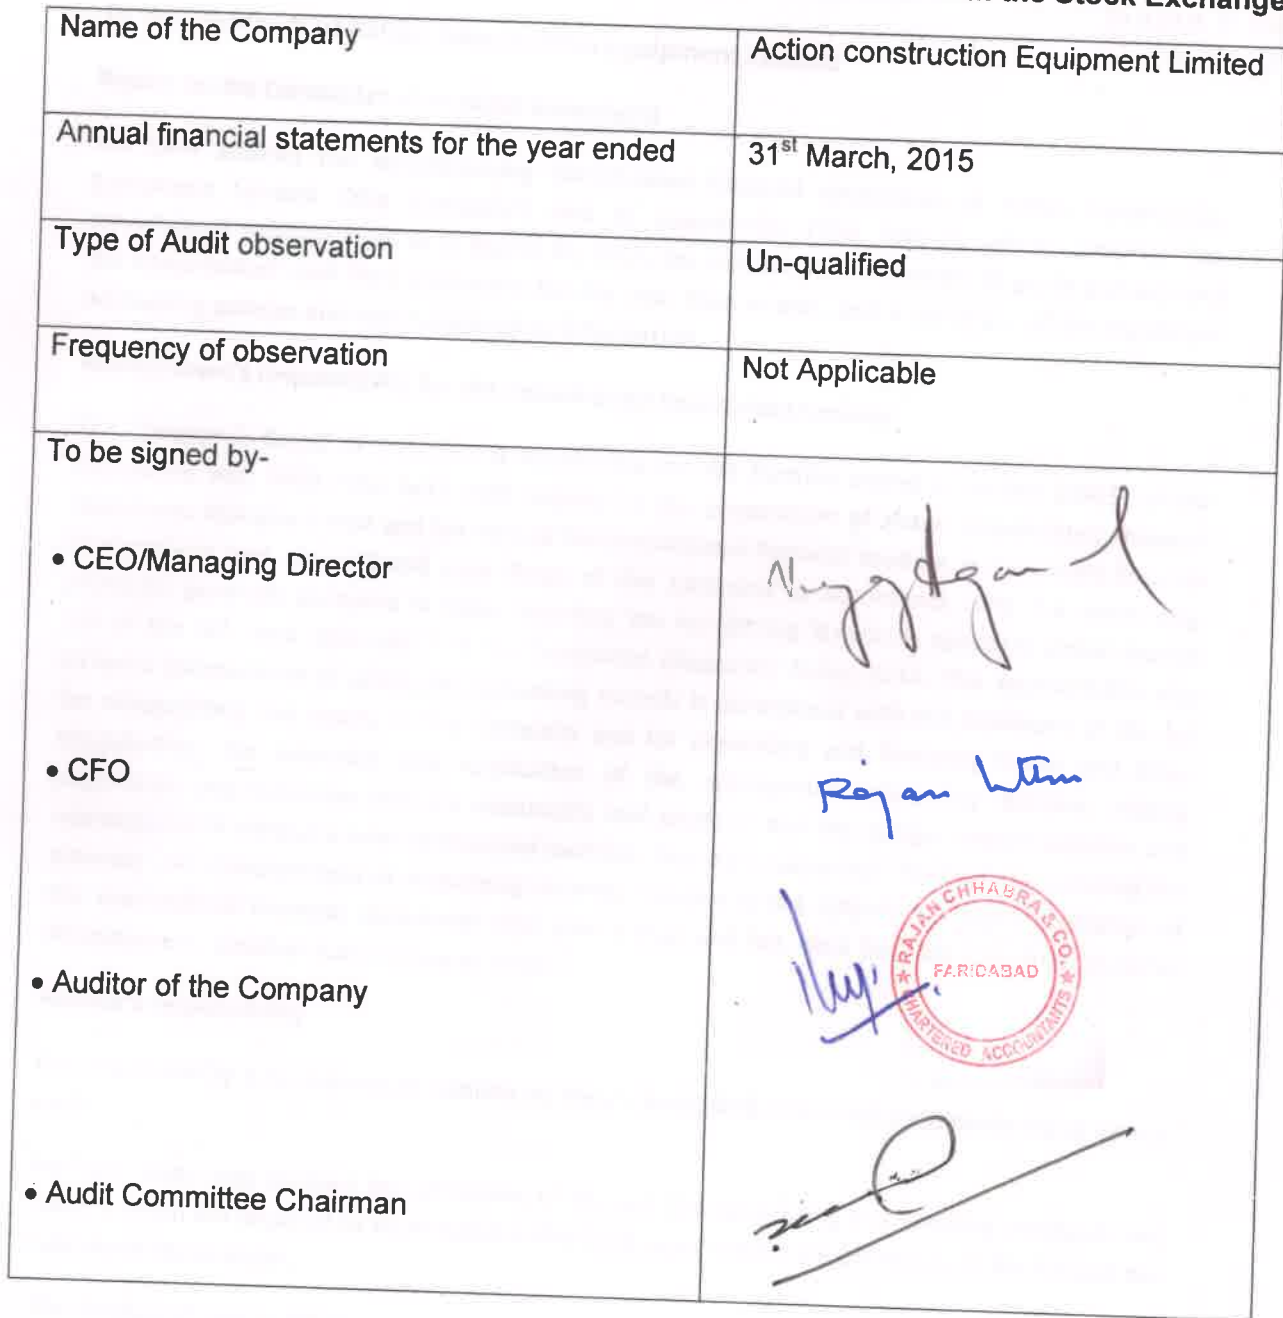 the Stock Exchange
Name of the Company
Action construction Equipment Limited
Annual financial statements for the year ended
31st March, 2015
Type of Audit observation
Un-qualified
Frequency of observation
Not Applicable
To be signed by-
• CEO/Managing Director
• CFO
Rajan
• Auditor of the Company
★ RAJAN CHHABRA & CO. ★
FARIDABAD
CHARTERED ACCOUNTANTS
• Audit Committee Chairman